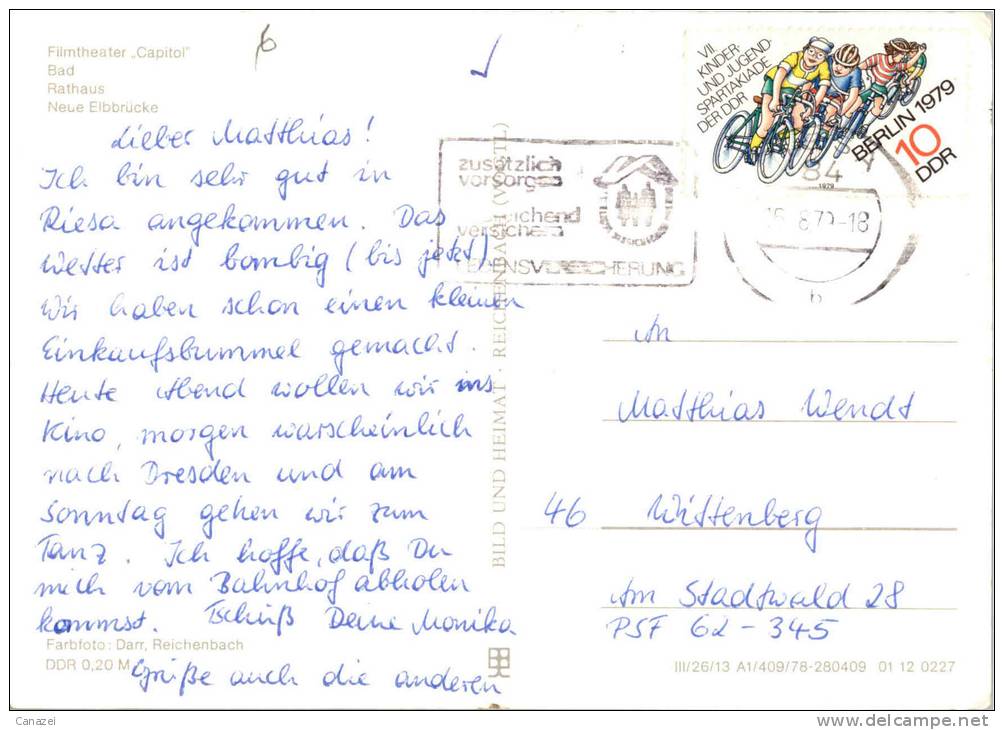 Filmtheater „Capitol"
Bad
Rathaus
Neue Elbbrücke
6
Lieber Matthias!
Ich bin sehr gut in
Riesa angekommen. Das
Wetter ist bombig (bis jetzt).
Wir haben schon einen kleinen
Einkaufsbummel gemacht.
Heute Abend wollen wir ins
Kino, morgen warscheinlich
nach Dresden und am
Sonntag gehen wir zum
Tanz. Ich hoffe, daß Du
mich vom Bahnhof abholen
kommst. Tschüß Deine Monika
Grüße auch die anderen
Farbfoto: Darr, Reichenbach
DDR 0,20 M
BILD UND HEIMAT · REICHENBACH (VOGTL)
zusätzlich
vorsorgen
versichern
LEBENSVERSICHERUNG
VII.
KINDER-
UND JUGEND-
SPARTAKIADE
DER DDR
BERLIN 1979
10
DDR
1979
84
8.79-18
b
An
Matthias Wendt
46 Wittenberg
Am Stadtwald 28
PSF 62-345
III/26/13 A1/409/78-280409 01 12 0227
Canazei
www.delcampe.net